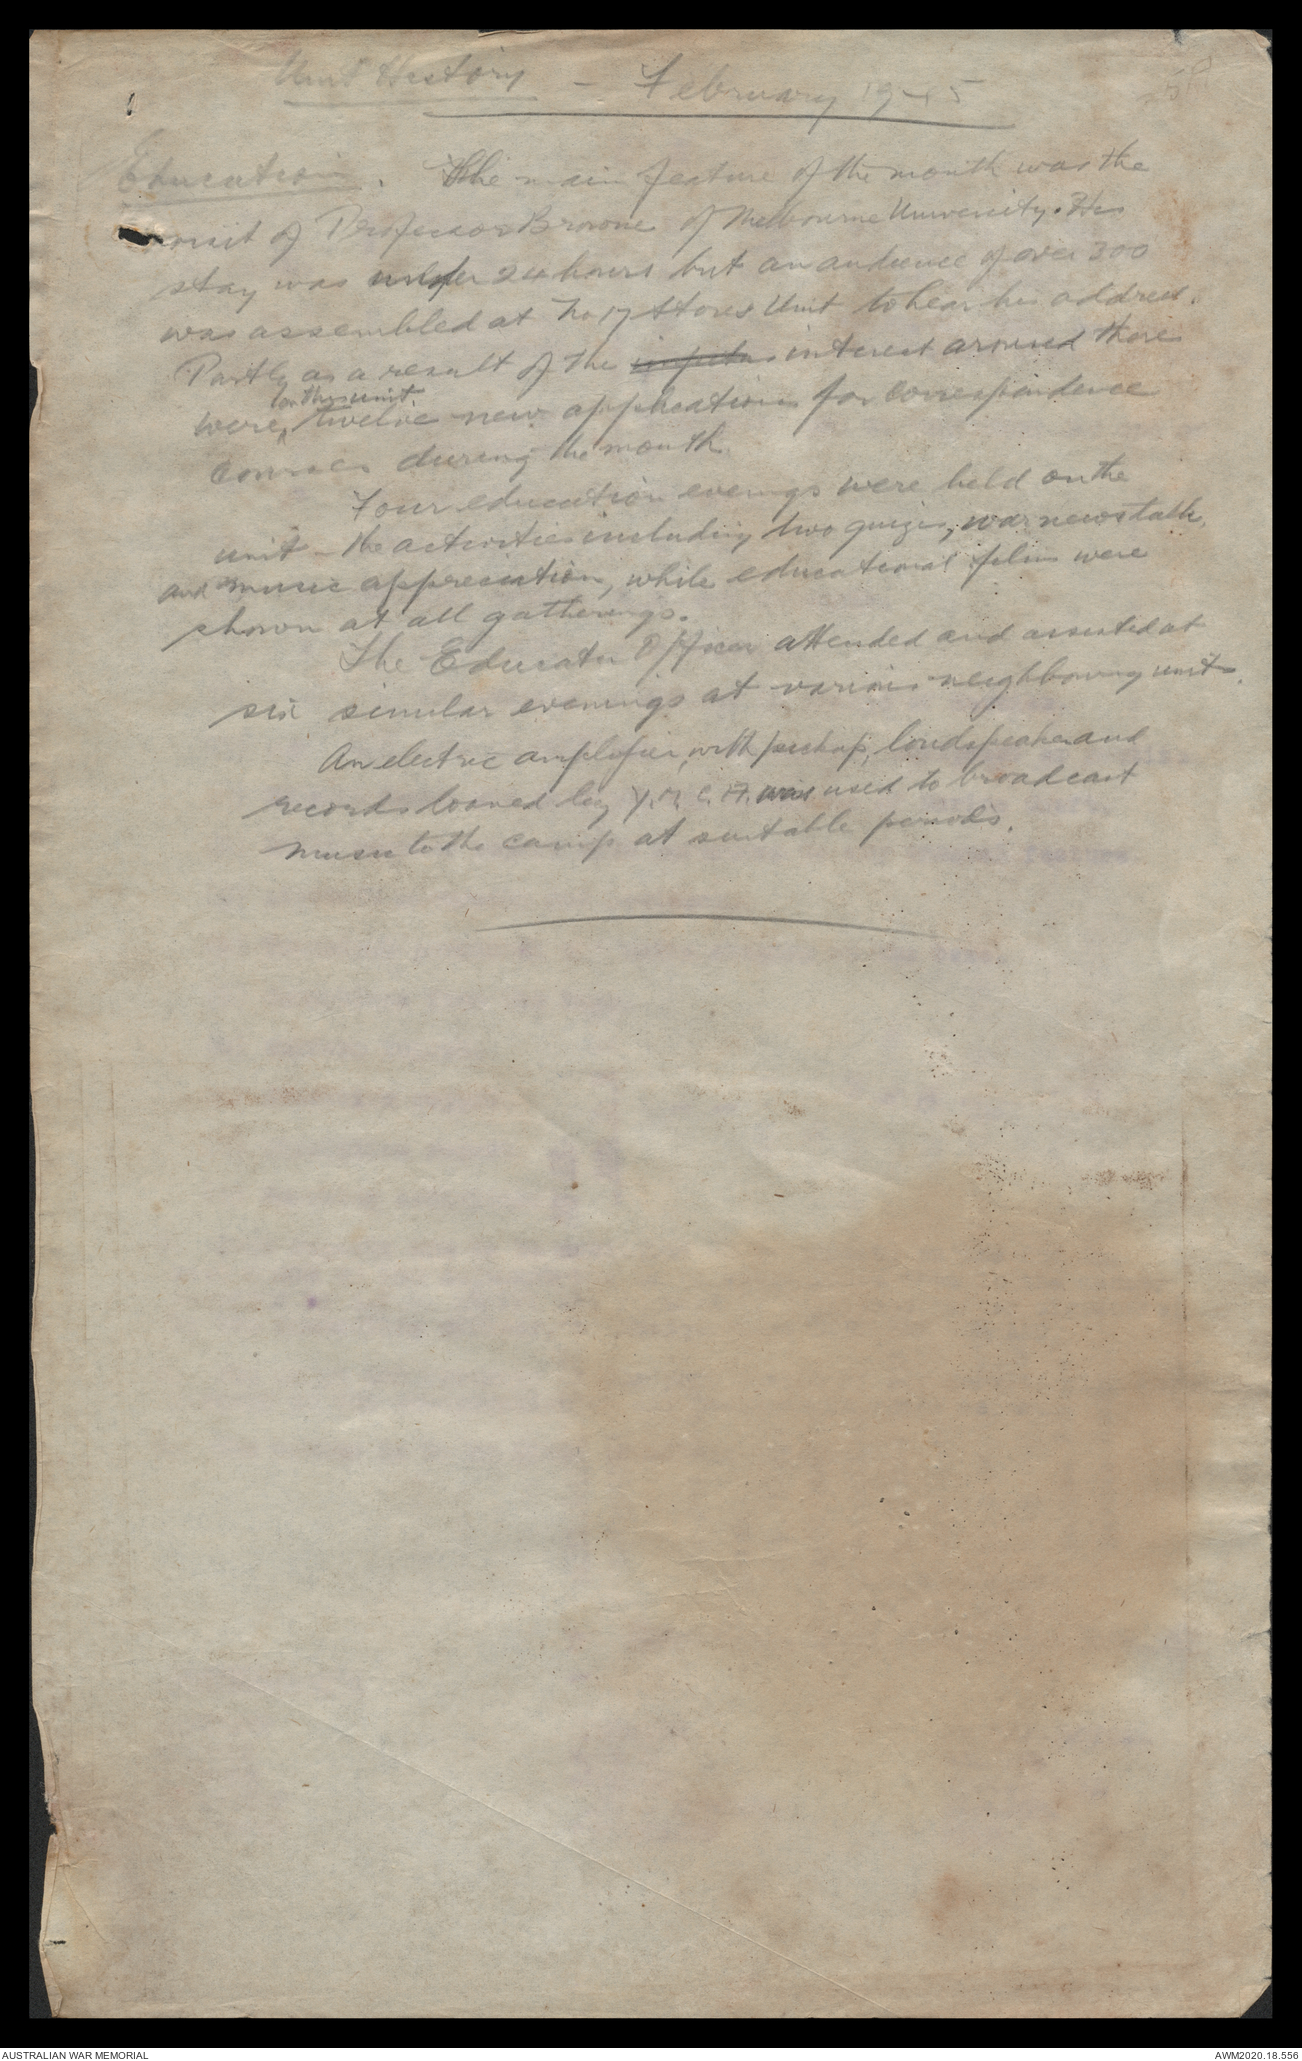 Unit History - February 1945
58
Education. The main feature of the month was the
visit of Professor Browne of Melbourne University. His
stay was under 24 hours but an audience of over 300
was assembled at No 17 Stores Unit to hear his address.
Partly as a result of the impetus interest aroused there
on this unit
were twelve new applications for correspondence
courses during the month.
Four education evenings were held on the
unit - the activities including two quizes, war news talk,
and music appreciation, while educational films were
shown at all gatherings.
The Education Officer attended and assisted at
six similar evenings at various neighbouring units.
An electric amplifier, with pickup, loudspeaker and
records loaned by Y.M.C.A. was used to broadcast
music to the camp at suitable periods.
AUSTRALIAN WAR MEMORIAL
AWM2020.18.556